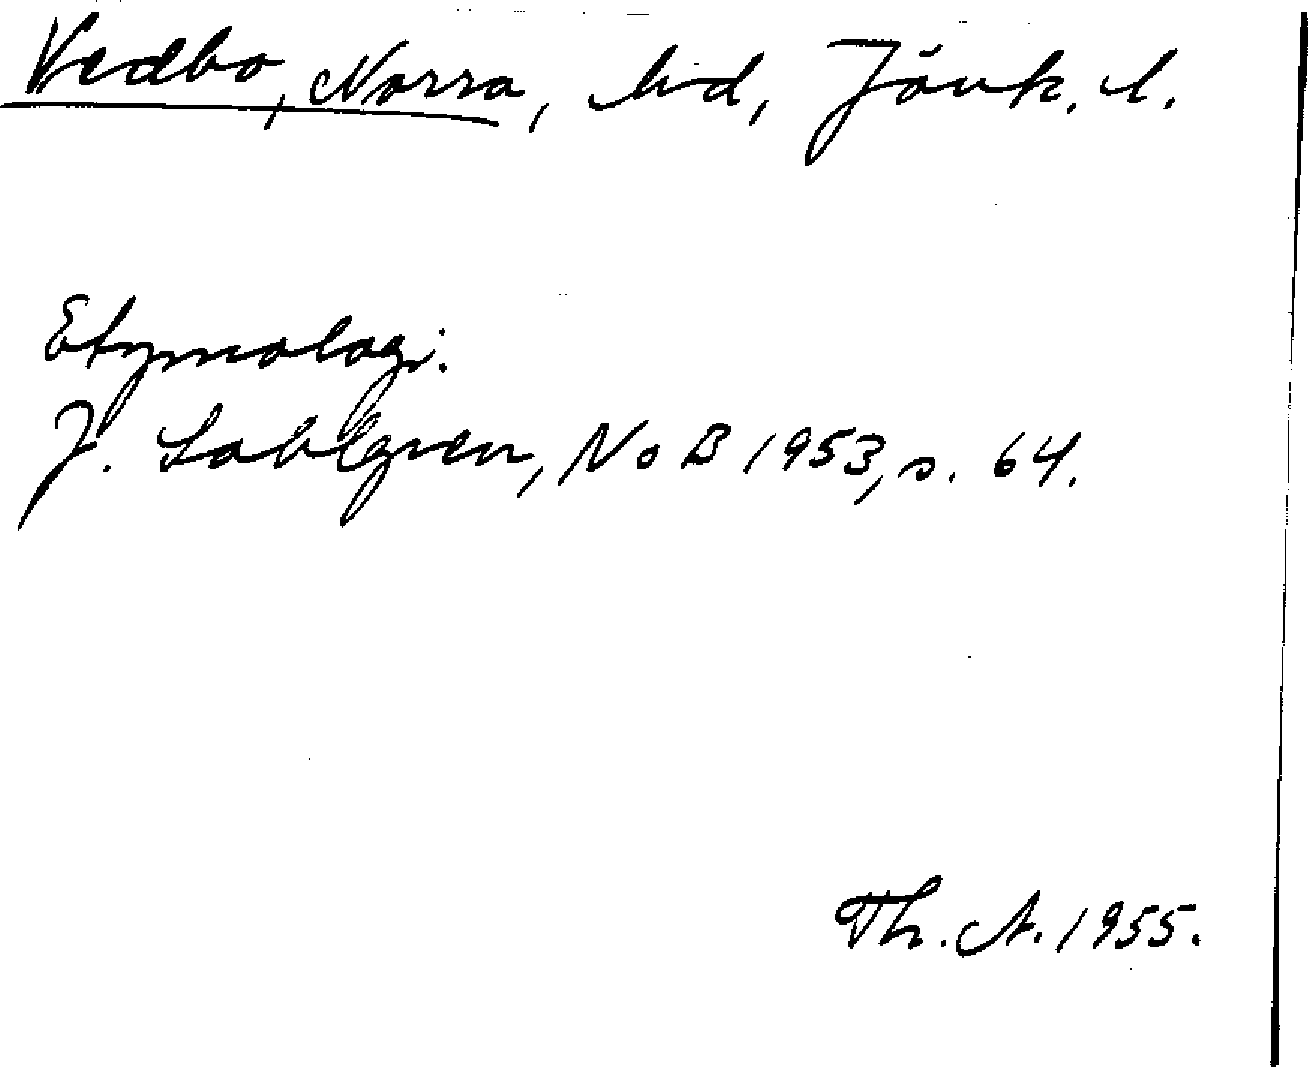 Vedbo, Norra, hd, Jönk. l.
Etymologi:
J. Sahlgren, NoB 1953, s. 64.
Th. A. 1955.